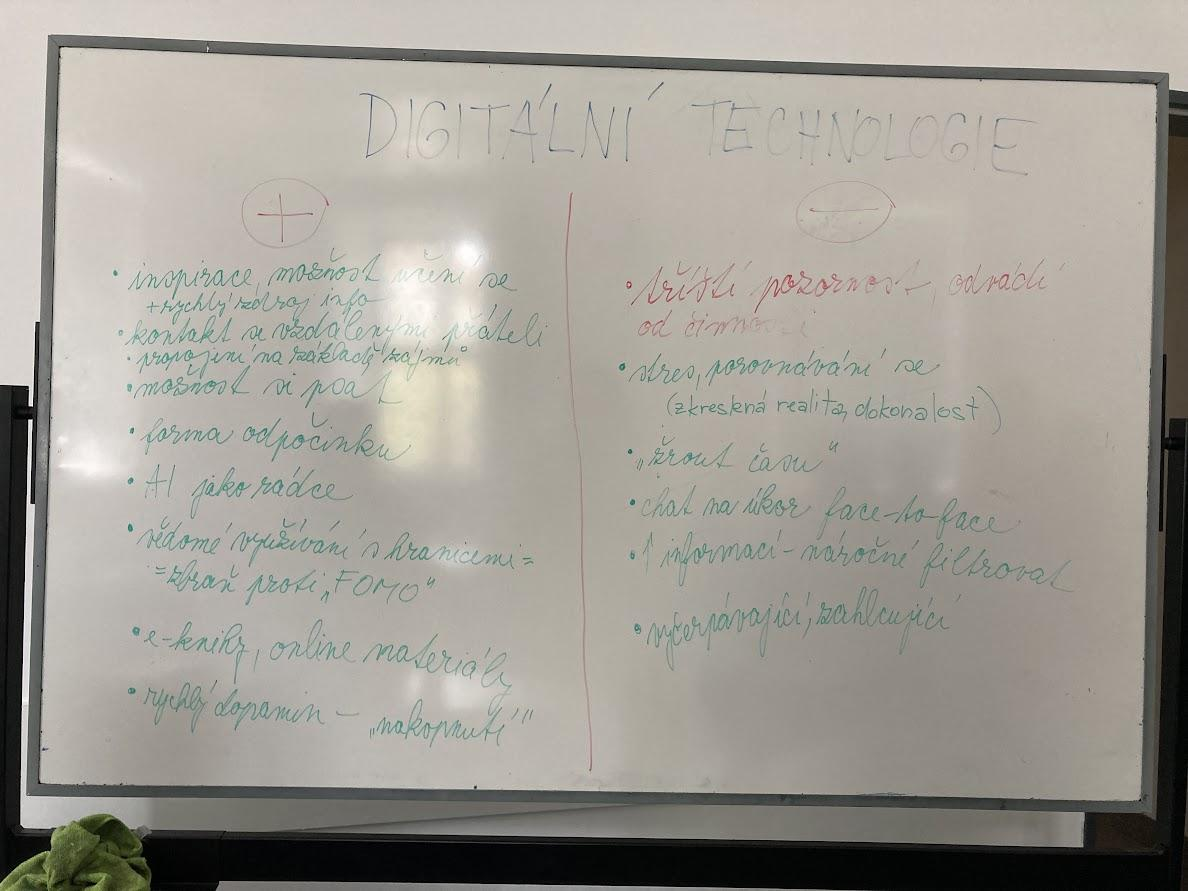 DIGITÁLNÍ TECHNOLOGIE
+
• inspirace, možnost učení se
+ rychlý zdroj info
• kontakt se vzdálenými přáteli
• propojení na základě zájmů
• možnost si psát
• forma odpočinku
• AI jako rádce
• vědomé využívání s hranicemi =
= zbraň proti „FOMO"
• e-knihy, online materiály
• rychlý dopamin – „nakopnutí"
−
• tříští pozornost, odvádí
od činnosti
• stres, porovnávání se
(zkreslená realita, dokonalost)
• „žrout času"
• chat na úkor face-to-face
• ↑ informací – náročné filtrovat
• vyčerpávající, zahlcující